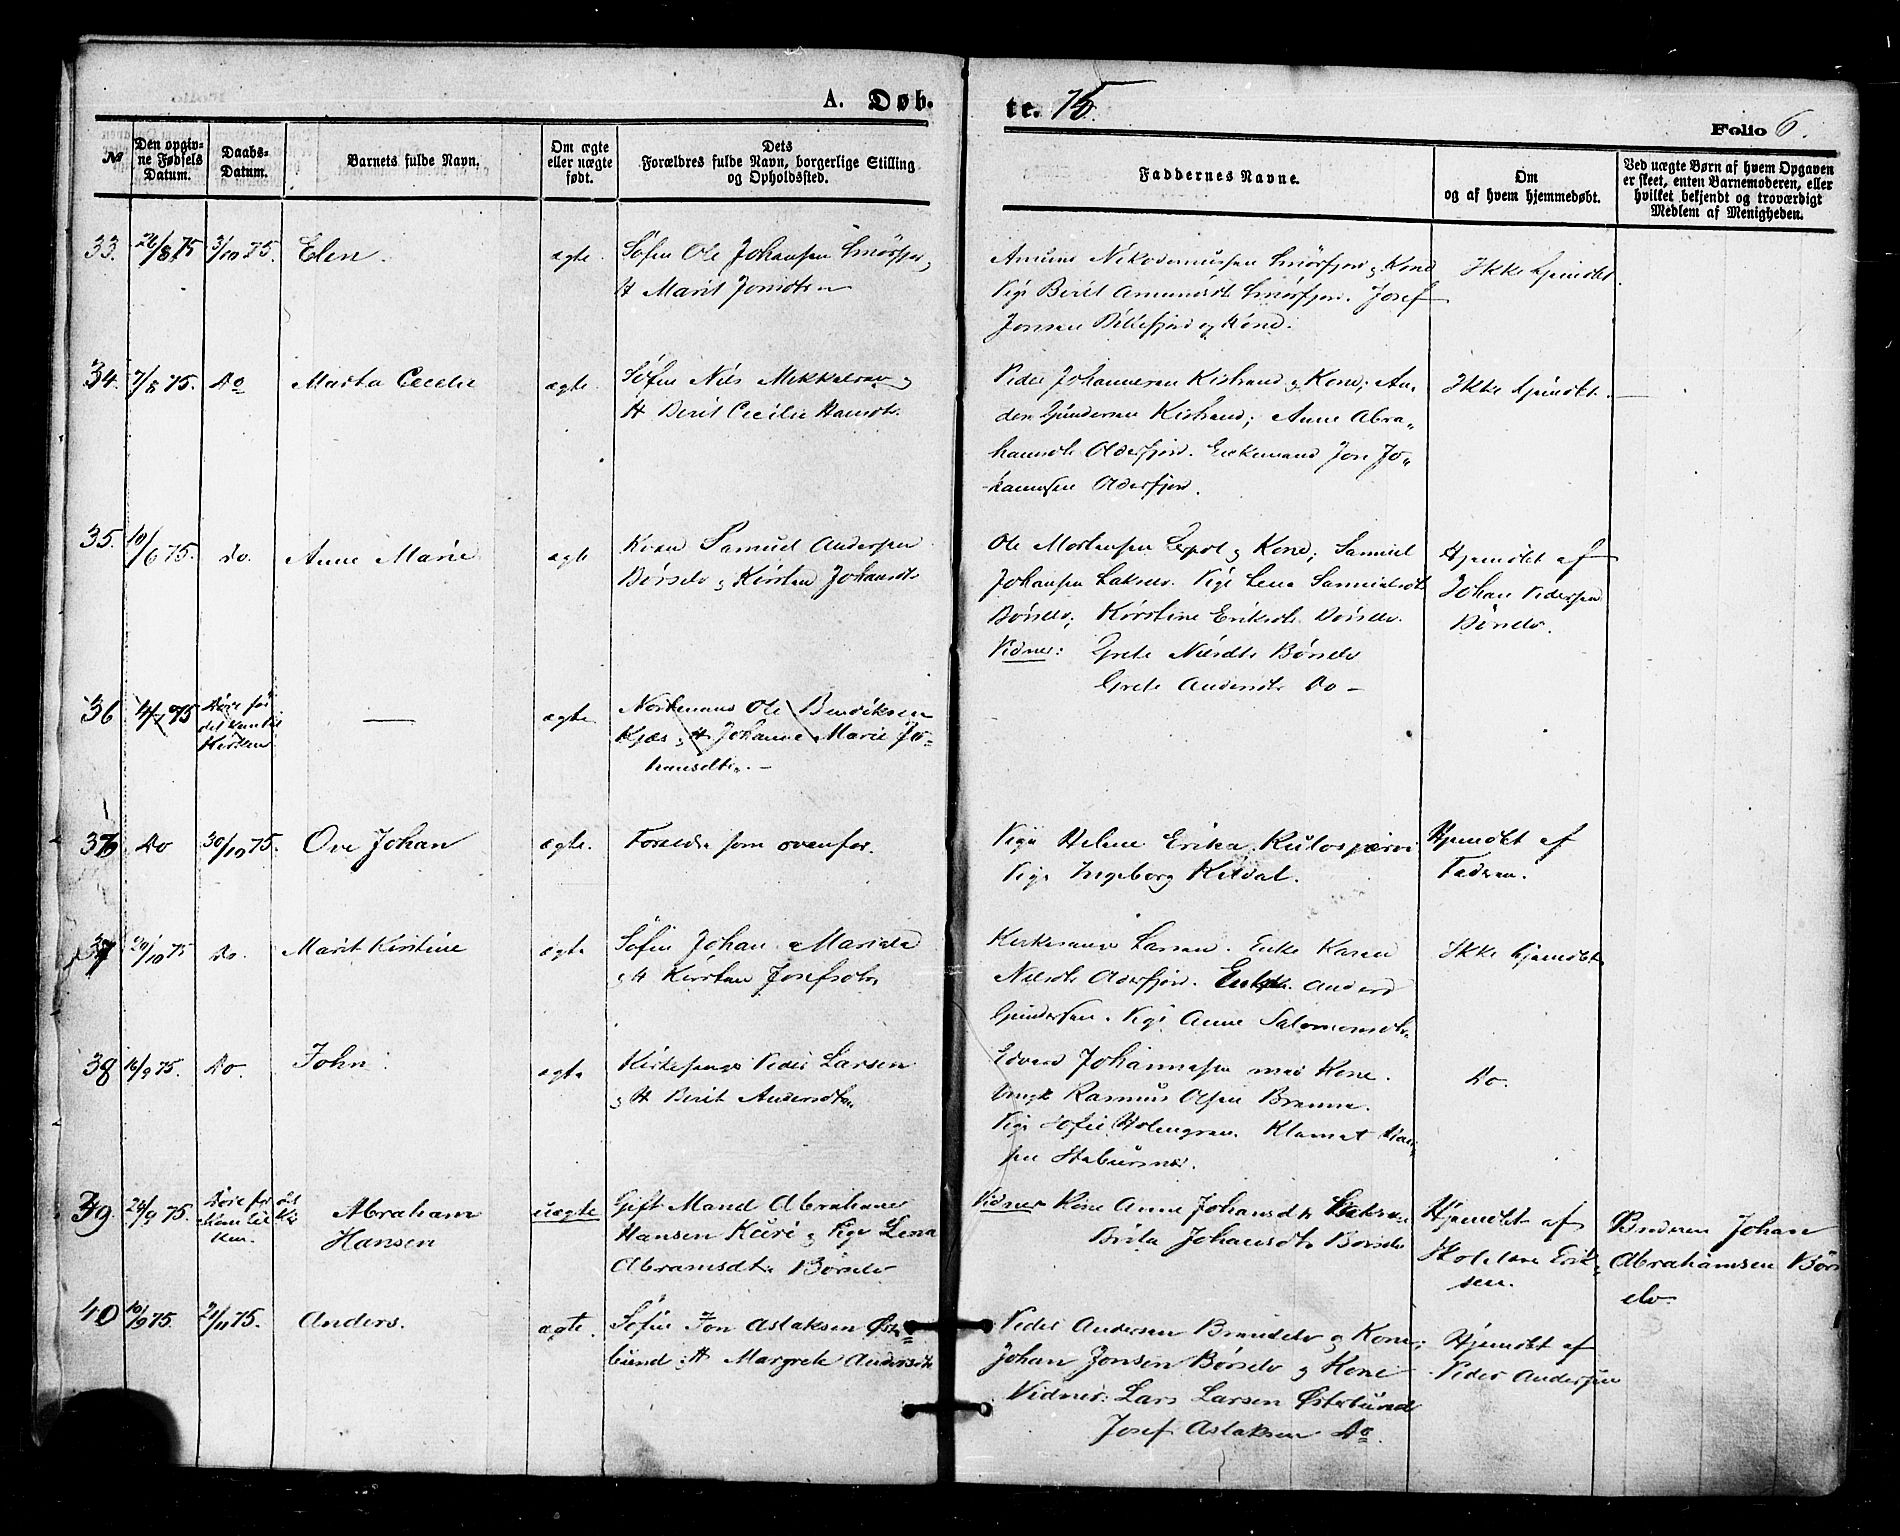 A. Døb.
te. 75.
Folio 6.
№
Den opgiv-
ne Fødsels
Datum.
Daabs-
Datum.
Barnets fulde Navn.
Om ægte
eller uægte
født.
Dets
Forældres fulde Navn, borgerlige Stilling
og Opholdssted.
Faddernes Navne.
Om
og af hvem hjemmedøbt.
Ved uægte Børn af hvem Opgaven
er skeet, enten Barnemoderen, eller
hvilket bekjendt og troværdigt
Medlem af Menigheden.
33. 26/8 75 3/10 75. Elen. ægte.
Søfin Ole Johansen Smørfjor &
H Marit Jonsdtr
Amund Nikodemussen Smørfjord & Kone
Pige Berit Amundsdt Smørfjor. Josef
Jonsen Billefjord og Kone.
Ikke hjemdbt.
34. 7/8 75. Do Marta Cecelie ægte.
Søfin Nils Mikkelsen &
H Berit Cecilie Hansdtr
Peder Johannesen Kistrand & Kone; An-
ders Gundersen Kistrand; Anne Abra-
hamsdtr Olderfjord. Enkemand Jon Jo-
hannesen Olderfjord.
Ikke hjemdbt.
35. 10/6 75. Do. Anne Marie ægte
Kvæn Samuel Andersen
Børselv & Kirsten Johansdtr
Ole Mortensen & Kone; Samuel
Johansen Lakselv. Pige Lena Samuelsdtr
Børselv; Kirstine Eriksdtr Børselv.
Vidner: Grete Nilsdtr Børselv
Grete Andersdtr Do -
Hjemdbt af
Johan Pedersen
Børselv.
36 4/7 75 Døde før
det kom til
Kirken
— ægte
Nordmand Ole Bendiksen
Kjær & H Johanne Marie Jo-
hansdtr. -
37 Do 30/10 75. Ove Johan ægte.
Forældre som ovenfor.
Pige Helene Erika
Pige Ingeborg Kildal.
Hjemdbt af
Faderen.
37 29/10 75 Do. Marit Kirstine ægte
Søfin Johan
& H Kirsten Josefsdtr
Kirkesanger Larsen. Enke Karen
Nilsdtr Olderfjord. Anders
Gundersen. Pige Anne Salomonsdtr.
Ikke hjemdbt
38 16/9 75. Do. John. ægte
Kirkesanger Peder Larsen
& H Berit Andersdtr
Edvard Johannesen med Kone.
Ungk Rasmus Olsen Brenna.
Pige Sofie Holmgren. Klemet
sen
Do.
39. 24/9 75. Døde før
kom til
ken. Abraham
Hansen
uægte
Gift Mand Abraham
Hansen Kuri & Pige Lena
Abramsdtr Børselv
Vidner Kone Anne Johansdtr
Brita Johansdtr Børselv
Hjemdbt af
Erik-
sen.
Broderen Johan
Abrahamsen Børs
elv.
40 10/9 75. 21/11 75. Anders. ægte.
Søfin Jon Aslaksen Øster-
bund & H Margrete Andersdtr
Peder Andersen & Kone;
Johan Jonsen Børselv & Kone
Vidner: Lars Larsen Østerbund
Josef Aslaksen Do.
Hjemdbt af
Peder Andersen